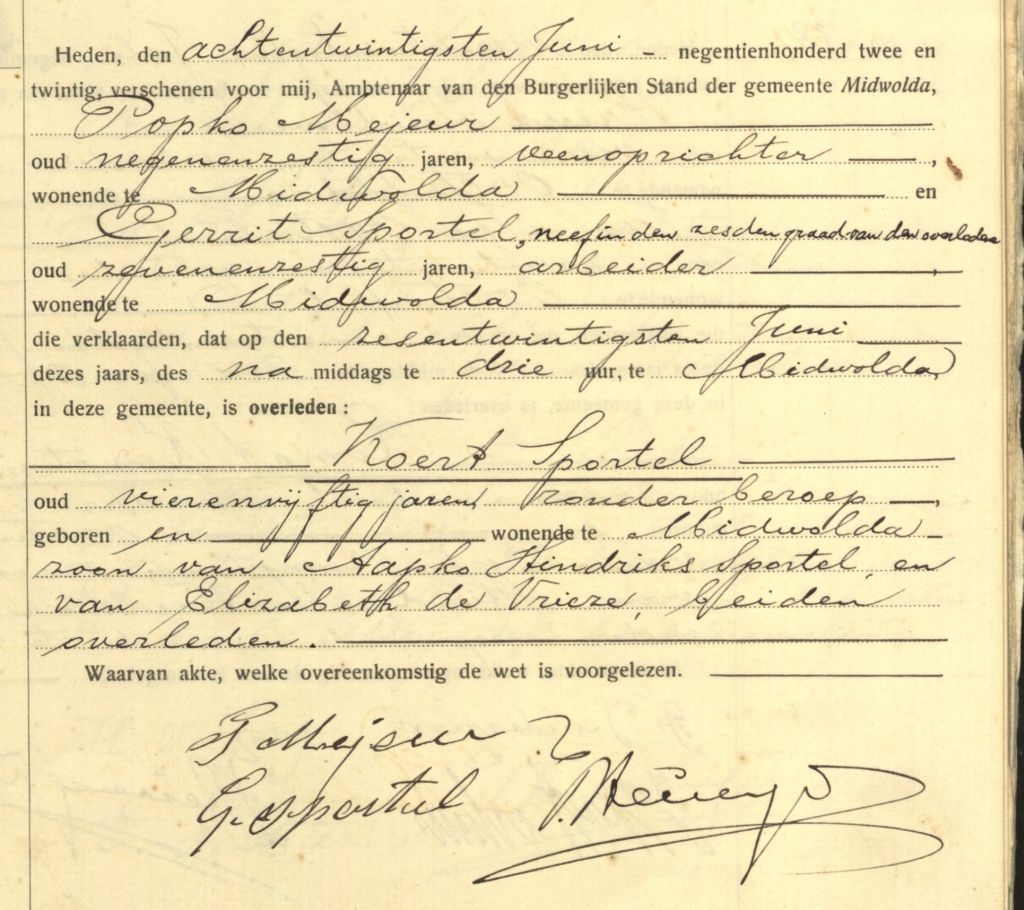 Heden, den achtentwintigsten Juni - negentienhonderd twee en
twintig, verschenen voor mij, Ambtenaar van den Burgerlijken Stand der gemeente Midwolda,
Popko Mejeur
oud negenenzestig jaren, veenoprichter,
wonende te Midwolda en
Gerrit Sportel, neef in den zesden graad van den overledene
oud zevenenzestig jaren, arbeider,
wonende te Midwolda
die verklaarden, dat op den zesentwintigsten Juni
dezes jaars, des na middags te drie uur, te Midwolda
in deze gemeente, is overleden:
Koert Sportel
oud vierenvijftig jaren, zonder beroep,
geboren en wonende te Midwolda
zoon van Aapko Hindriks Sportel, en
van Elizabeth de Vrieze, beiden
overleden.
Waarvan akte, welke overeenkomstig de wet is voorgelezen.
P Mejeur
G. Sportel